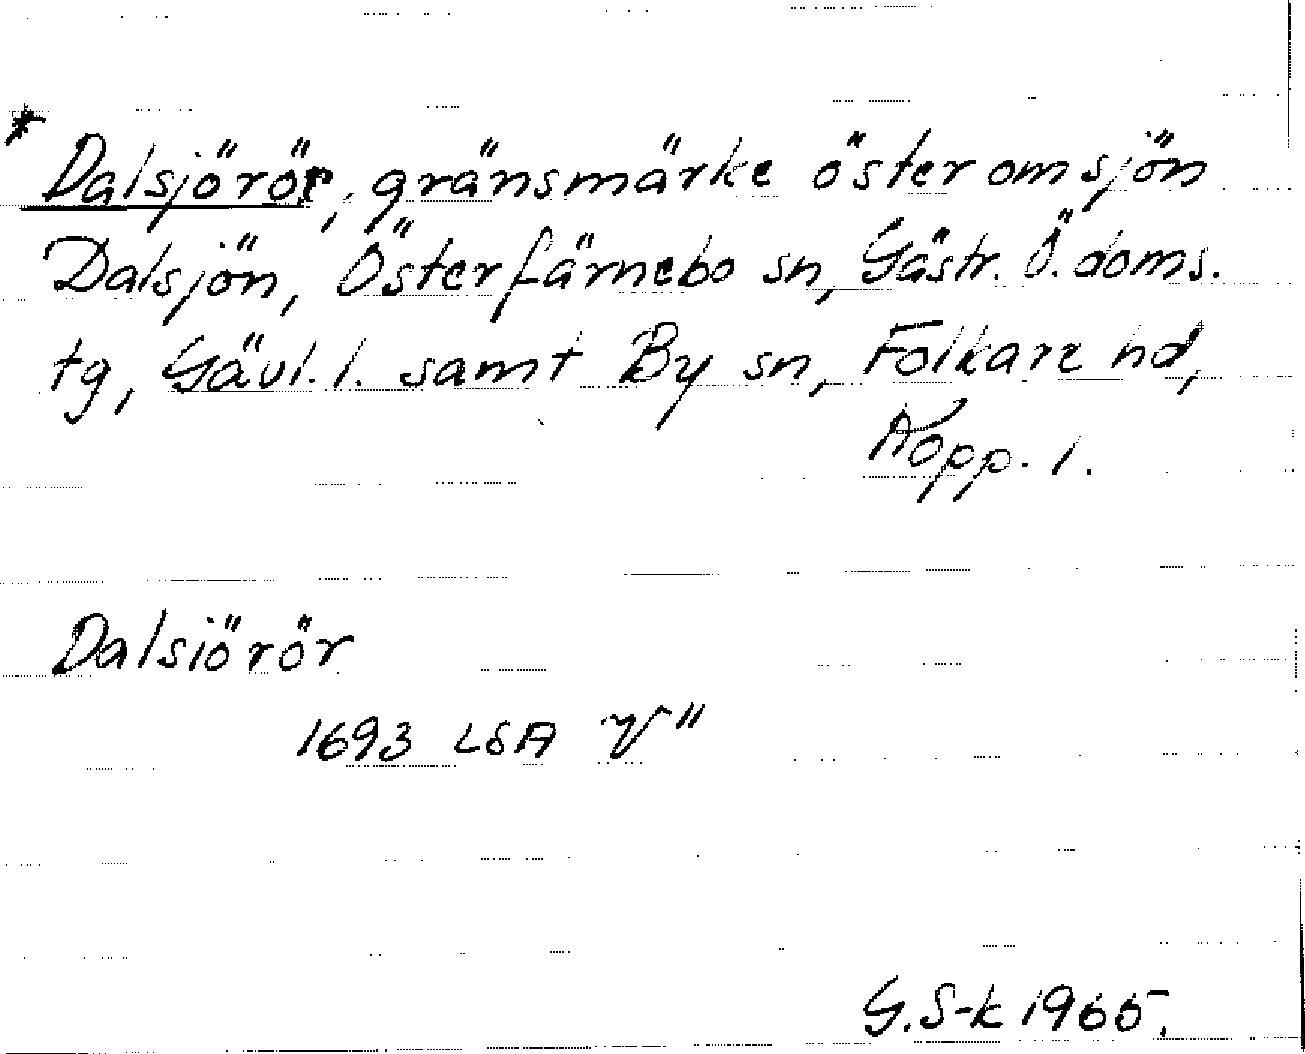 * Dalsjörör, gränsmärke öster om sjön
Dalsjön, Österfärnebo sn, Gästr. Ö. doms.
tg, Gävl. l. samt By sn, Folkare hd,
Kopp. l.
Dalsiörör
1693 LSA
G. S-k 1965.